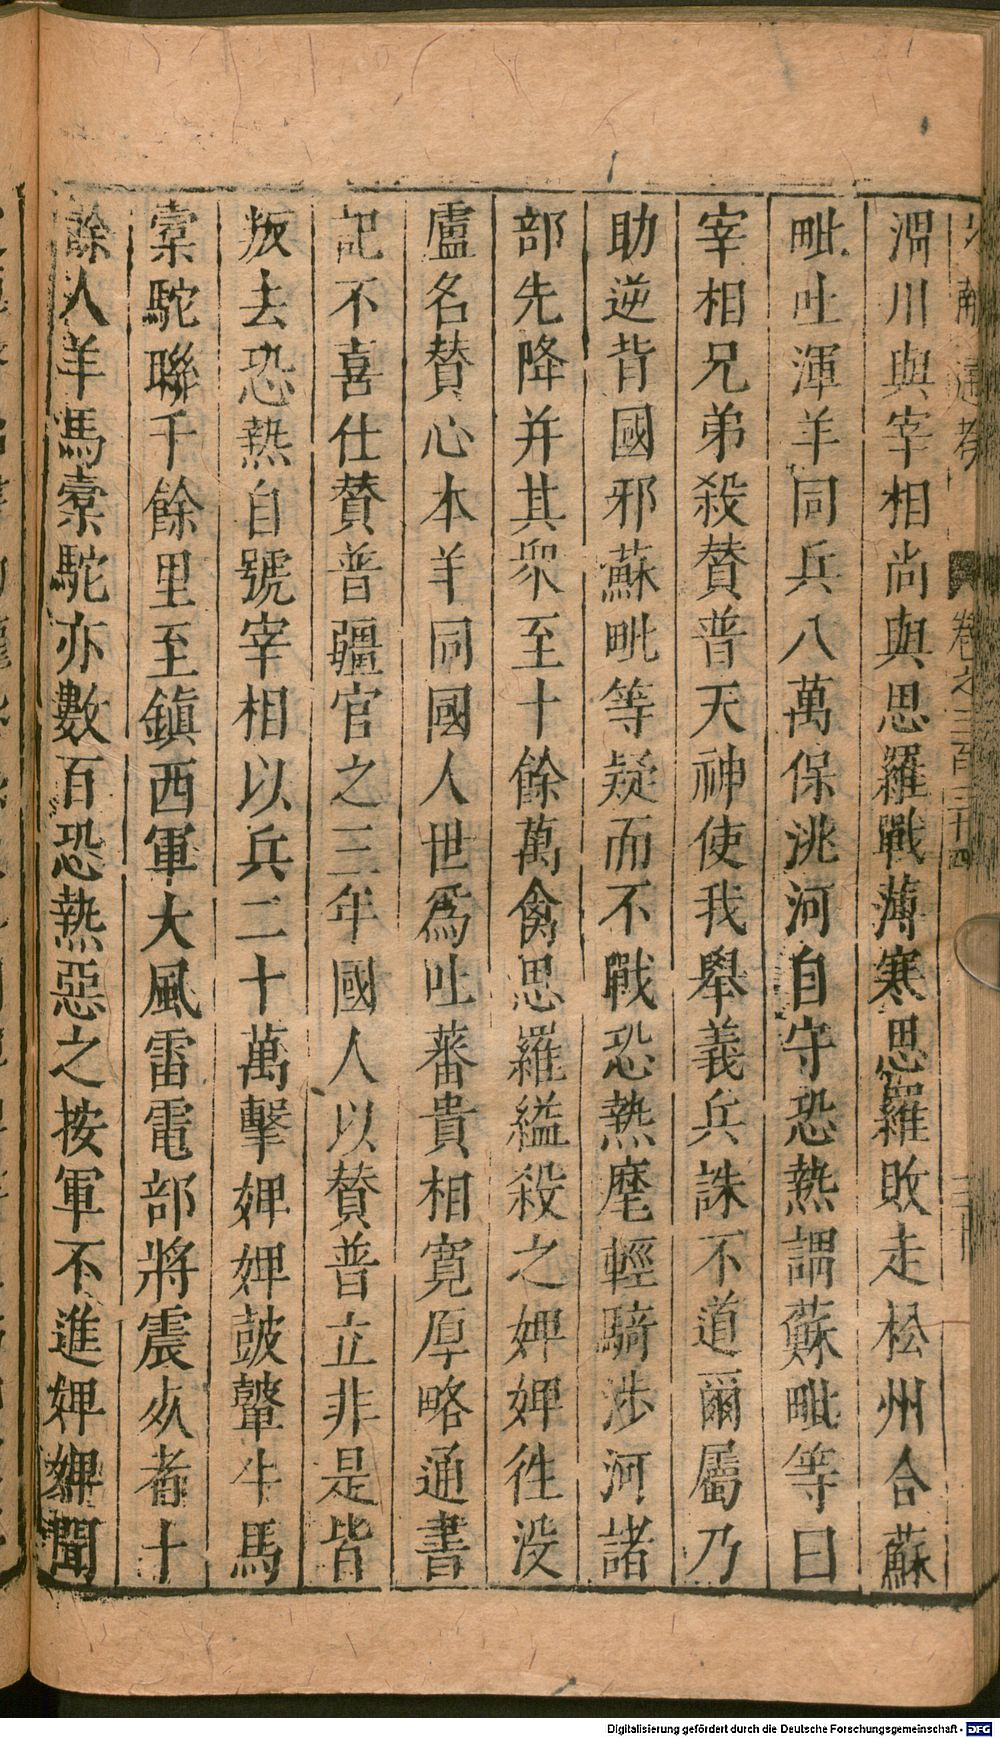 文獻通考 卷之三百三十四
渭川與宰相尚與思羅戰薄寒思羅敗走松州合蘇
毗吐渾羊同兵八萬保洮河自守恐熱謂蘇毗等曰
宰相兄弟殺賛普天神使我舉義兵誅不道爾屬乃
助逆背國邪蘇毗等疑而不戰恐熱麾輕騎涉河諸
部先降并其衆至十餘萬禽思羅縊殺之婢婢徃没
盧名賛心本羊同國人世爲吐蕃貴相寬厚略通書
記不喜仕賛普疆官之三年國人以賛普立非是皆
叛去恐熱自號宰相以兵二十萬擊婢婢鼓鼙牛馬
橐駝聯千餘里至鎮西軍大風雷電部將震死者十
餘人羊馬橐駝亦數百恐熱惡之按軍不進婢婢聞
Digitalisierung gefördert durch die Deutsche Forschungsgemeinschaft - DFG